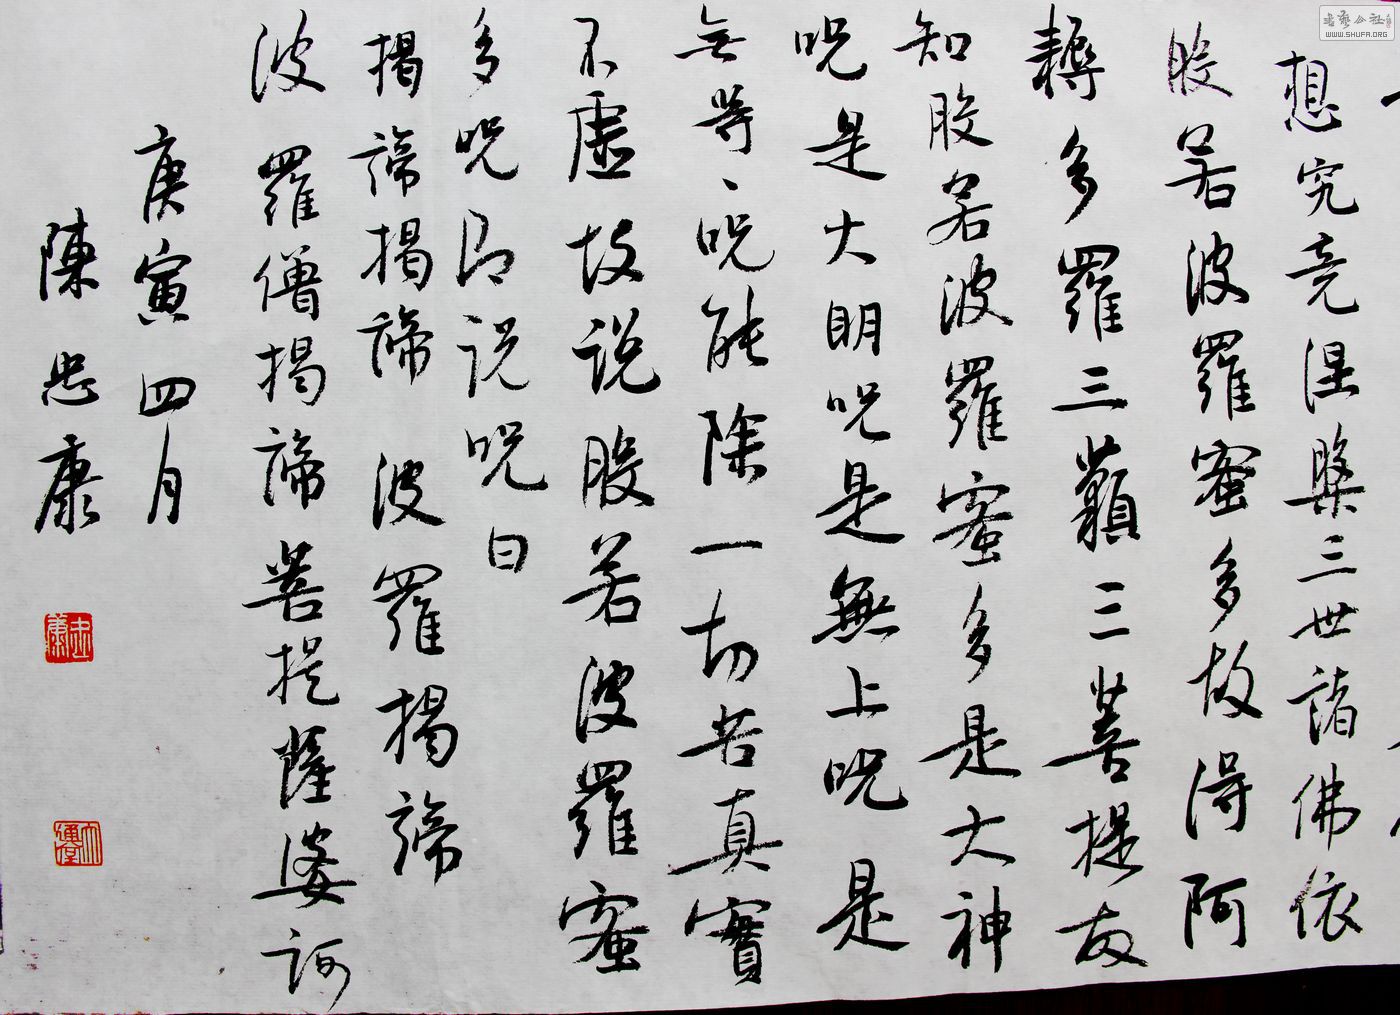 想究竟涅槃三世諸佛依
般若波羅蜜多故得阿
耨多羅三藐三菩提故
知般若波羅蜜多是大神
咒是大明咒是無上咒是
無等、咒能除一切苦真實
不虛故说般若波羅蜜
多咒即说咒曰
揭諦揭諦波羅揭諦
波羅僧揭諦菩提薩婆訶
庚寅四月
陳忠康
忠康
書藝公社
WWW.SHUFA.ORG